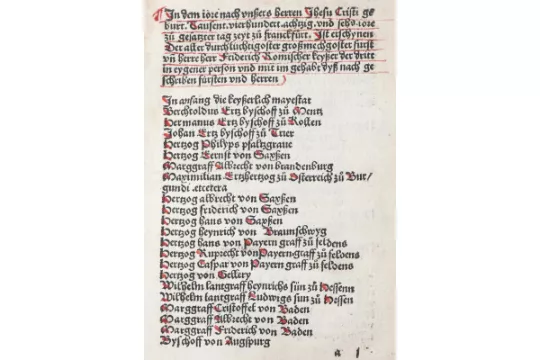 In dem iore nach vnßers herren Jhesu Cristi ge
burt. Tausent. vierhundert. achtzig. vnd sehs. iore
zů gesatzter tag zeyt zů franckfurt. Ist erschynen
Der aller durchlüchtigoster großmechtgoster fürst
vn̄ herre herr Friderich Romischer keyßer der dritt
in eygener person vnd mit im gehabt dyß nach ge
schriben fürsten vnd herren
In anfang die keyserlich mayestat
Berchtoldus Ertz byschoff zů Mentz
Hermanus Ertz byschoff zů Kollen
Johan Ertz byschoff zů Trier
Hertzog Philyps pfaltzgraue
Hertzog Eernst von Saxßen
Marggraff Albrecht von brandenburg
Maximilian Ertzhertzog zů Osterreich zů Bur/
gundi .etcetera
Hertzog albrecht von Saxßen
Hertzog friderich von Saxßen
Hertzog hans von Saxßen
Hertzog heynrich von Braunschwyg
Hertzog hans von Payern graff zů feldens
Hertzog Ruprecht von Payern graff zů feldens
Hertzog Caspar von Payern graff zů feldens
Hertzog von Gellery
Wilhelm lantgraff heynrichs sün zů Hessenn
Wilhelm lantgraff Ludwigs sun zů Hessen
Marggraff Cristoffel von Baden
Marggraff Albrecht von Baden
Marggraff Friderich von Baden
Byschoff von Augspurg
a j